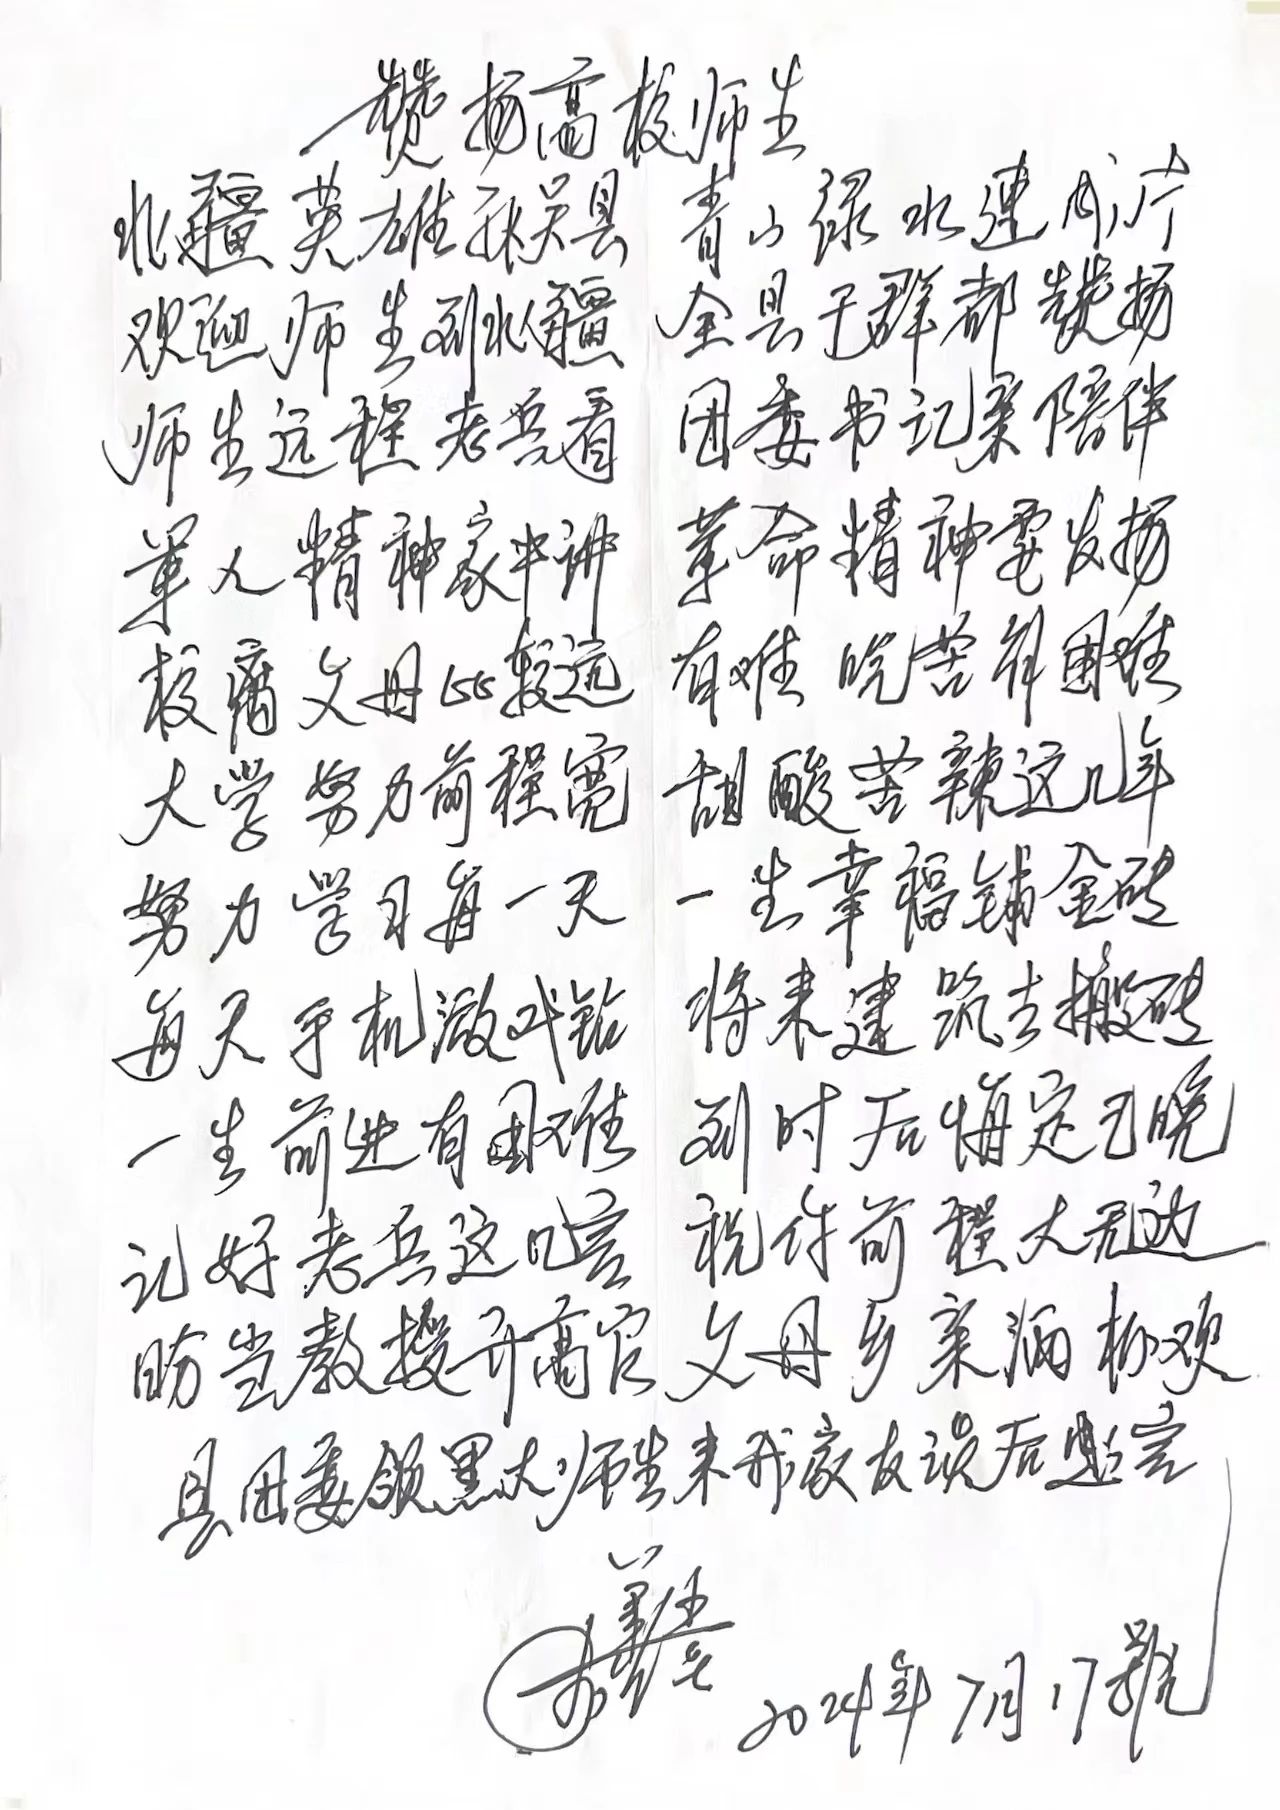 赞扬高校师生
北疆英雄孙吴县 青山绿水连成片
欢迎师生到北疆 全县干群都赞扬
师生远程老兵看 团委书记亲陪伴
军人精神家中讲 革命精神要发扬
校离父母比较远 有难吃苦有困难
大学努力前程宽 甜酸苦辣这几年
努力学习每一天 一生幸福铺金砖
每天手机游戏钻 将来建筑去搬砖
一生前进有困难 到时后悔定已晚
记好老兵这几言 祝你前程大无边
盼当教授升高官 父母乡亲满柳欢
县团委领黑大师生来我家友谈后感言
2024年7月17號